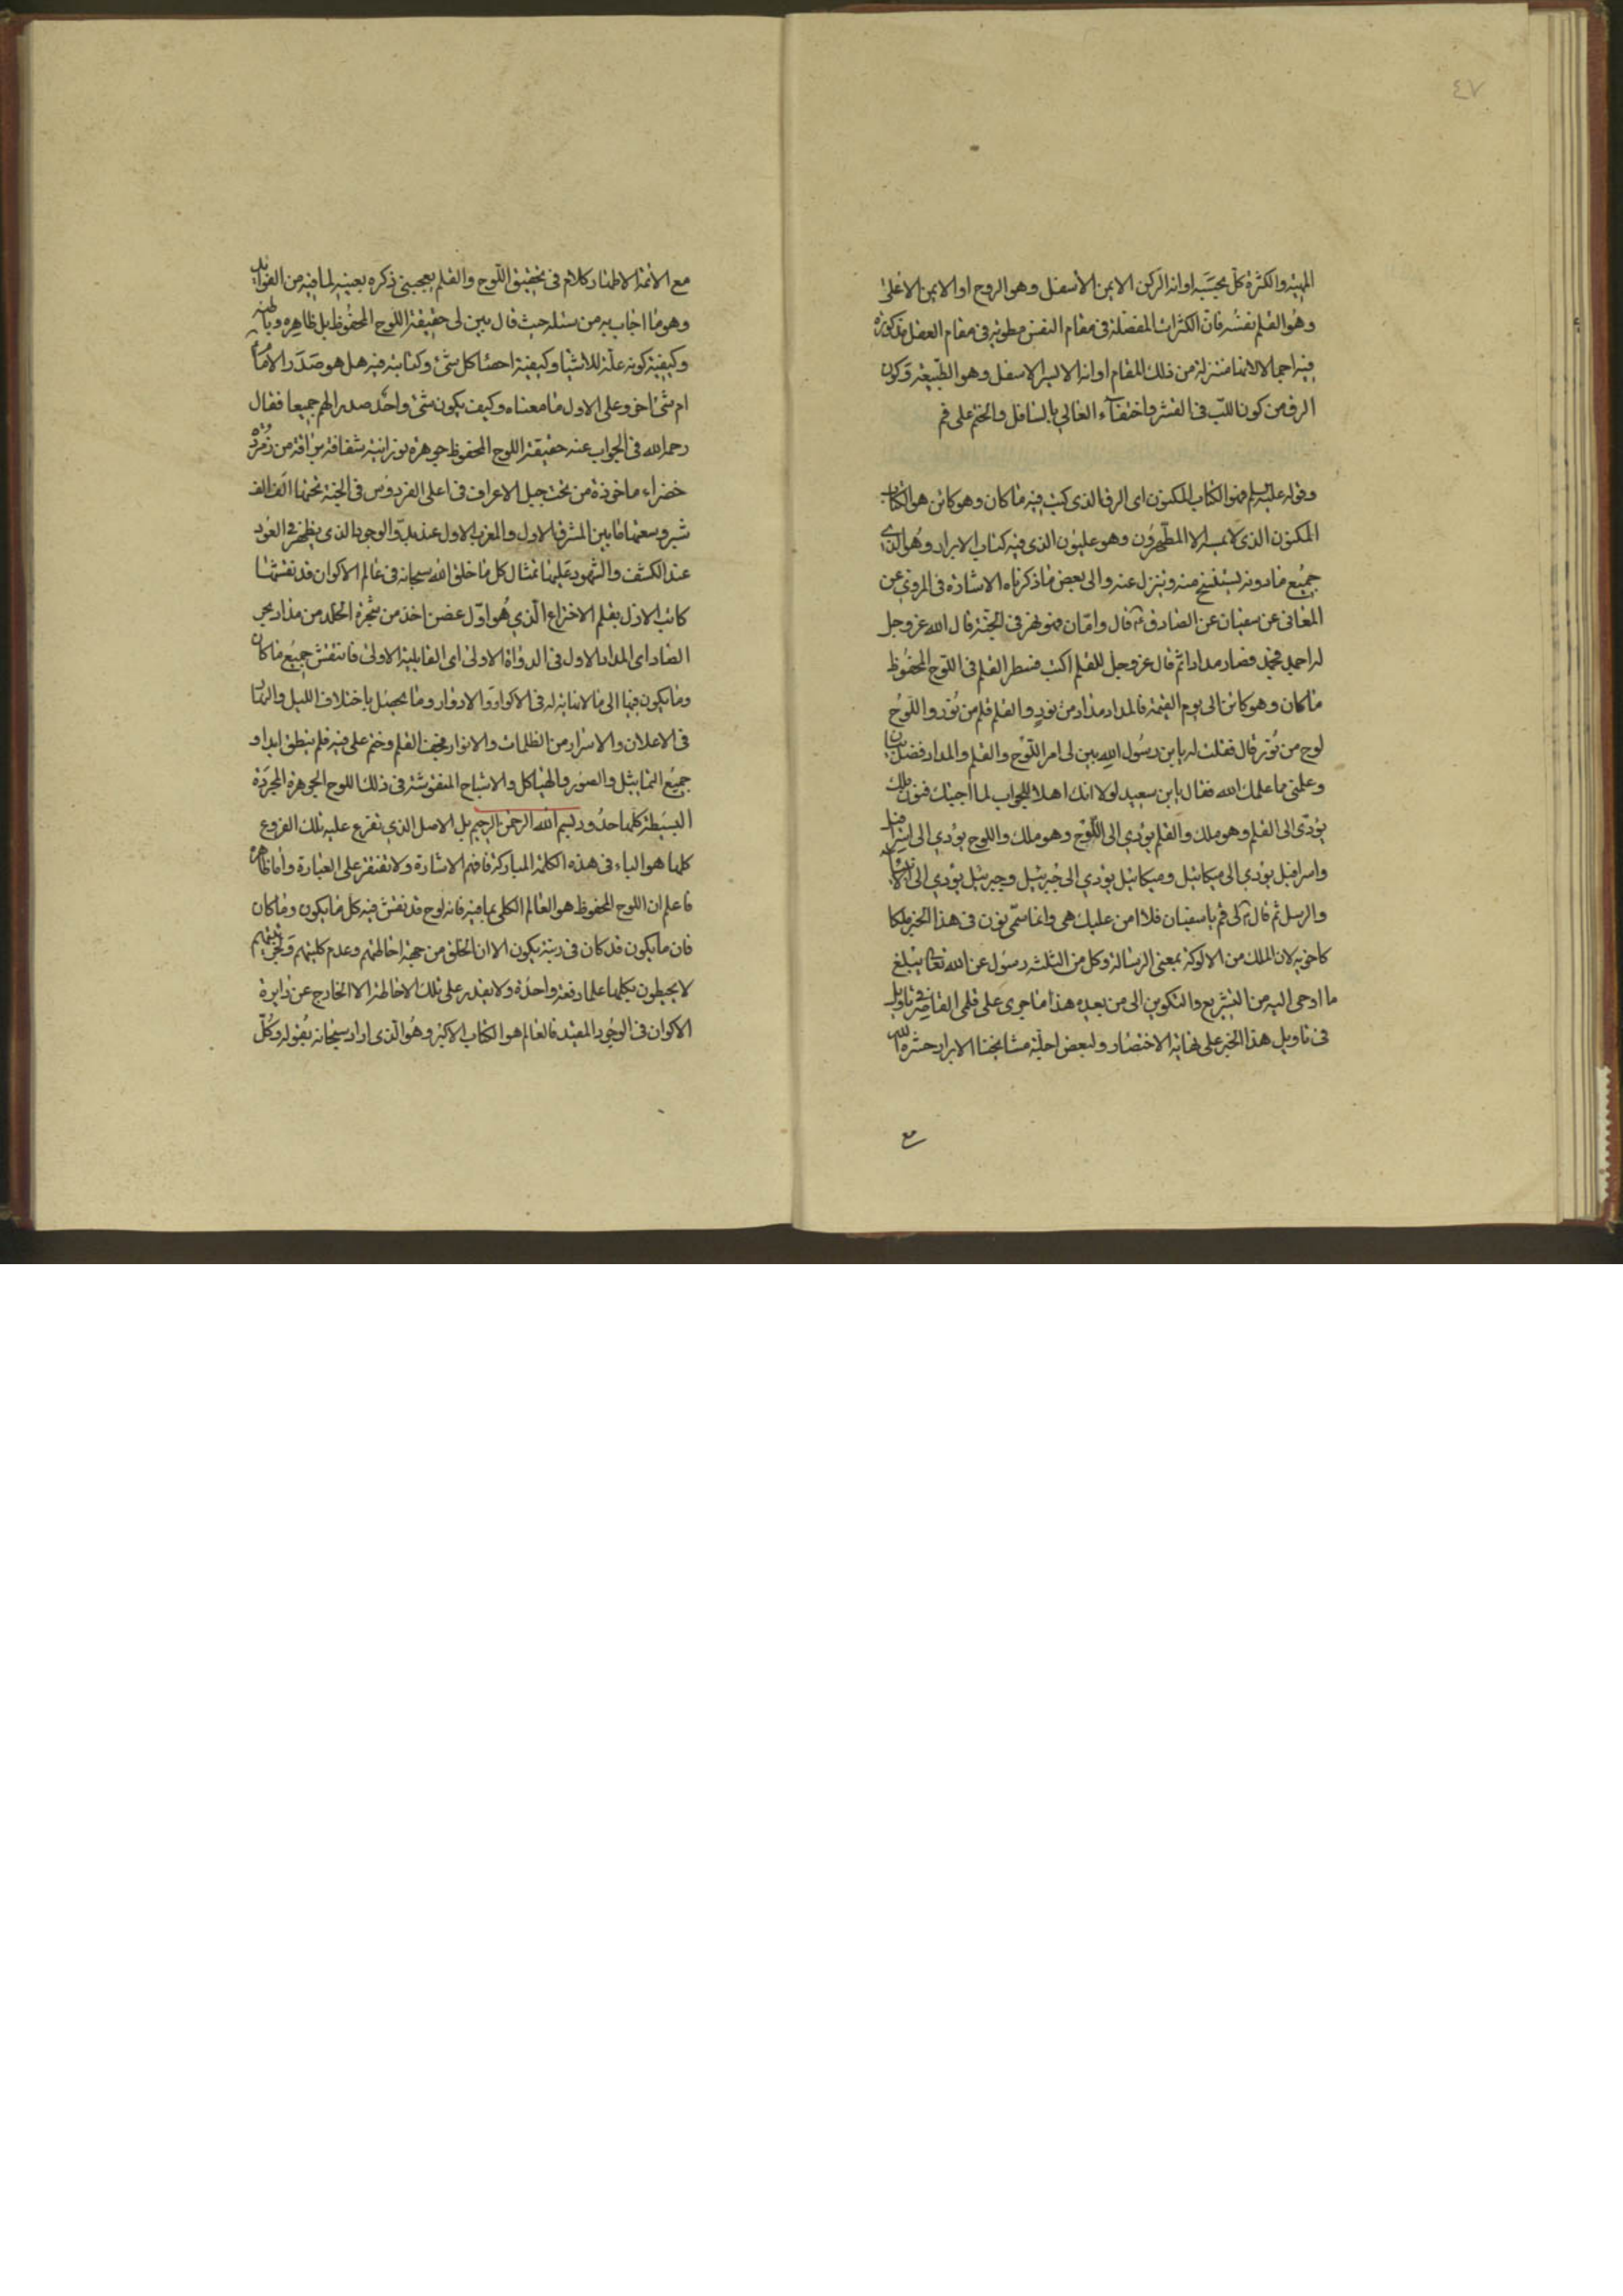 ٤٧
المهيته والكثرة كلّ بحسبه او انه الركن الايمن الاسفل وهو الروح او الايمن الاعلى
وهو القلم نفسه فانّ الكثرات المفصّلة فى مقام النفس مطوية فى مقام العقل مذكورة
فيه اجمالا لانها متنزلة من ذلك المقام او انه الايسر الاسفل وهو الطبيعة وكون
الرق من كون اللبّ فى القشر واختفاء العالي بالسافل والختم على فم
وقوله عليه السلم فهو الكتاب المكنون اى الرق الذى كتب فيه ما كان وهو كائن هو الكتاب
المكنون الذى لا يمسه الا المطهرون وهو عليون الذى فيه كتاب الابرار وهو الذى
جميع ما دونه يستنسخ منه ويتنزل عنه والى بعض ما ذكرناه الاشارة فى المروي عن
المعانى عن سفيان عن الصادق ع قال وامّا ن فهو نهر فى الجنّة قال الله عز وجل
له اجمد فجمد فصار مدادا ثم قال عز وجل للقلم اكتب فسطر القلم فى اللوح المحفوظ
ما كان وهو كائن الى يوم القيمة فالمداد مداد من نور والقلم قلم من نور واللوح
لوح من نور قال فقلت له يا بن رسول الله بين لى امر اللوح والقلم والمداد فضل بيان
وعلمنى مما علمك الله فقال يا بن سعيد لولا انك اهل للجواب لما اجبتك فنون ملك
يؤدّى الى القلم وهو ملك والقلم يؤدي الى اللّوح وهو ملك واللوح يؤدي الى اسرافيل
واسرافيل يؤدي الى ميكائيل وميكائيل يؤدي الى جبرئيل وجبرئيل يؤدي الى الانبياء
والرسل ثم قال ع لى قم يا سفيان فلا امن عليك هى وانما سمّى نون فى هذا الخبر ملكا
كاخويه لان الملك من الالوكة بمعنى الرسالة وكل من الثلثه رسول عن الله تعالى يبلغ
ما اوحى اليه من التشريع والتكوين الى من بعده هذا ما جرى على قلمى القاصر فى تاويل
فى تاويل هذا الخبر على نهاية الاختصار ولبعض اجلّة مشايخنا الابرار حشره الله
مع
مع الائمة الاطهار كلام فى تحقيق اللّوح والقلم يعجبنى ذكره بعينه لما فيه من الفوايد
وهو ما اجاب به من سئله حيث قال بين لى حقيقة اللوح المحفوظ بل ظاهره وباطنه
وكيفية كونه علّة للاشيا وكيفية احصا كل شئ وكتابته فيه هل هو صدر الامام
ام شئ اخر وعلى الاول ما معناه وكيف يكون شئ واحد صدر الهم جميعا فقال
رحمه الله فى الجواب عنه حقيقة اللوح المحفوظ جوهرة نورانية شفافة براقة من زمردة
خضراء ماخوذة من تحت جبل الاعراف فى اعلى الفردوس فى الجنة تخنها الف الف
شبر وسعتها ما بين المشرق الاول والمغرب الاول عند بدّو الوجود الذى يظهر فى العود
عند الكشف والشهود عليها تمثال كل ما خلق الله سبحانه فى عالم الاكوان قد نقشتها
كاتب الازل بقلم الاختراع الّذي هو اوّل غصن اخذ من شجرة الخلد من مداد بحر
الصاد اى المداد الاول فى الدواة الاولى اى القابلية الاولى فانتقش جميع ما كان
وما يكون فيها الى ما لا نهاية له فى الاكوار والادوار وما يحصل باختلاف الليل والنهار
فى الاعلان والاسرار من الظلمات والانوار فجف القلم وختم على فيه فلم ينطق ابدا و
جميع التماثيل والصور والهياكل والاشباح المنقوشة فى ذلك اللوح الجوهرة المجردة
البسيطة كلها حدود بسم الله الرحمن الرحيم بل الاصل الذي تفرع عليه تلك الفروع
كلها هو الباء فى هذه الكلمة المباركة فافهم الاشارة ولا تقتصر على العبارة واما ظاهره
فاعلم ان اللوح المحفوظ هو العالم الكلى بما فيه فانه لوح قد نقش فيه كل ما يكون وما كان
فان ما يكون قد كان فى رتبة يكون الا ان الخلق من جهة احاطتهم وعدم كليتهم وتجزيتهم
لا يحيطون بكلها علما دفعة واحدة ولا يقدر على تلك الاحاطة الا الخارج عن دايرة
الاكوان فى الوجود المقيد فالعالم هو الكتاب الاكبر وهو الّذى اراد سبحانه بقوله وكلّ